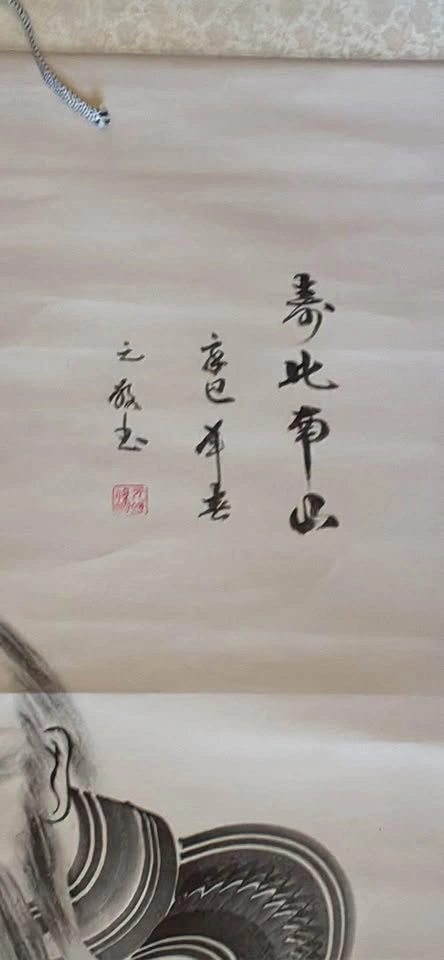 寿比南山
辛巳年春
元敬书